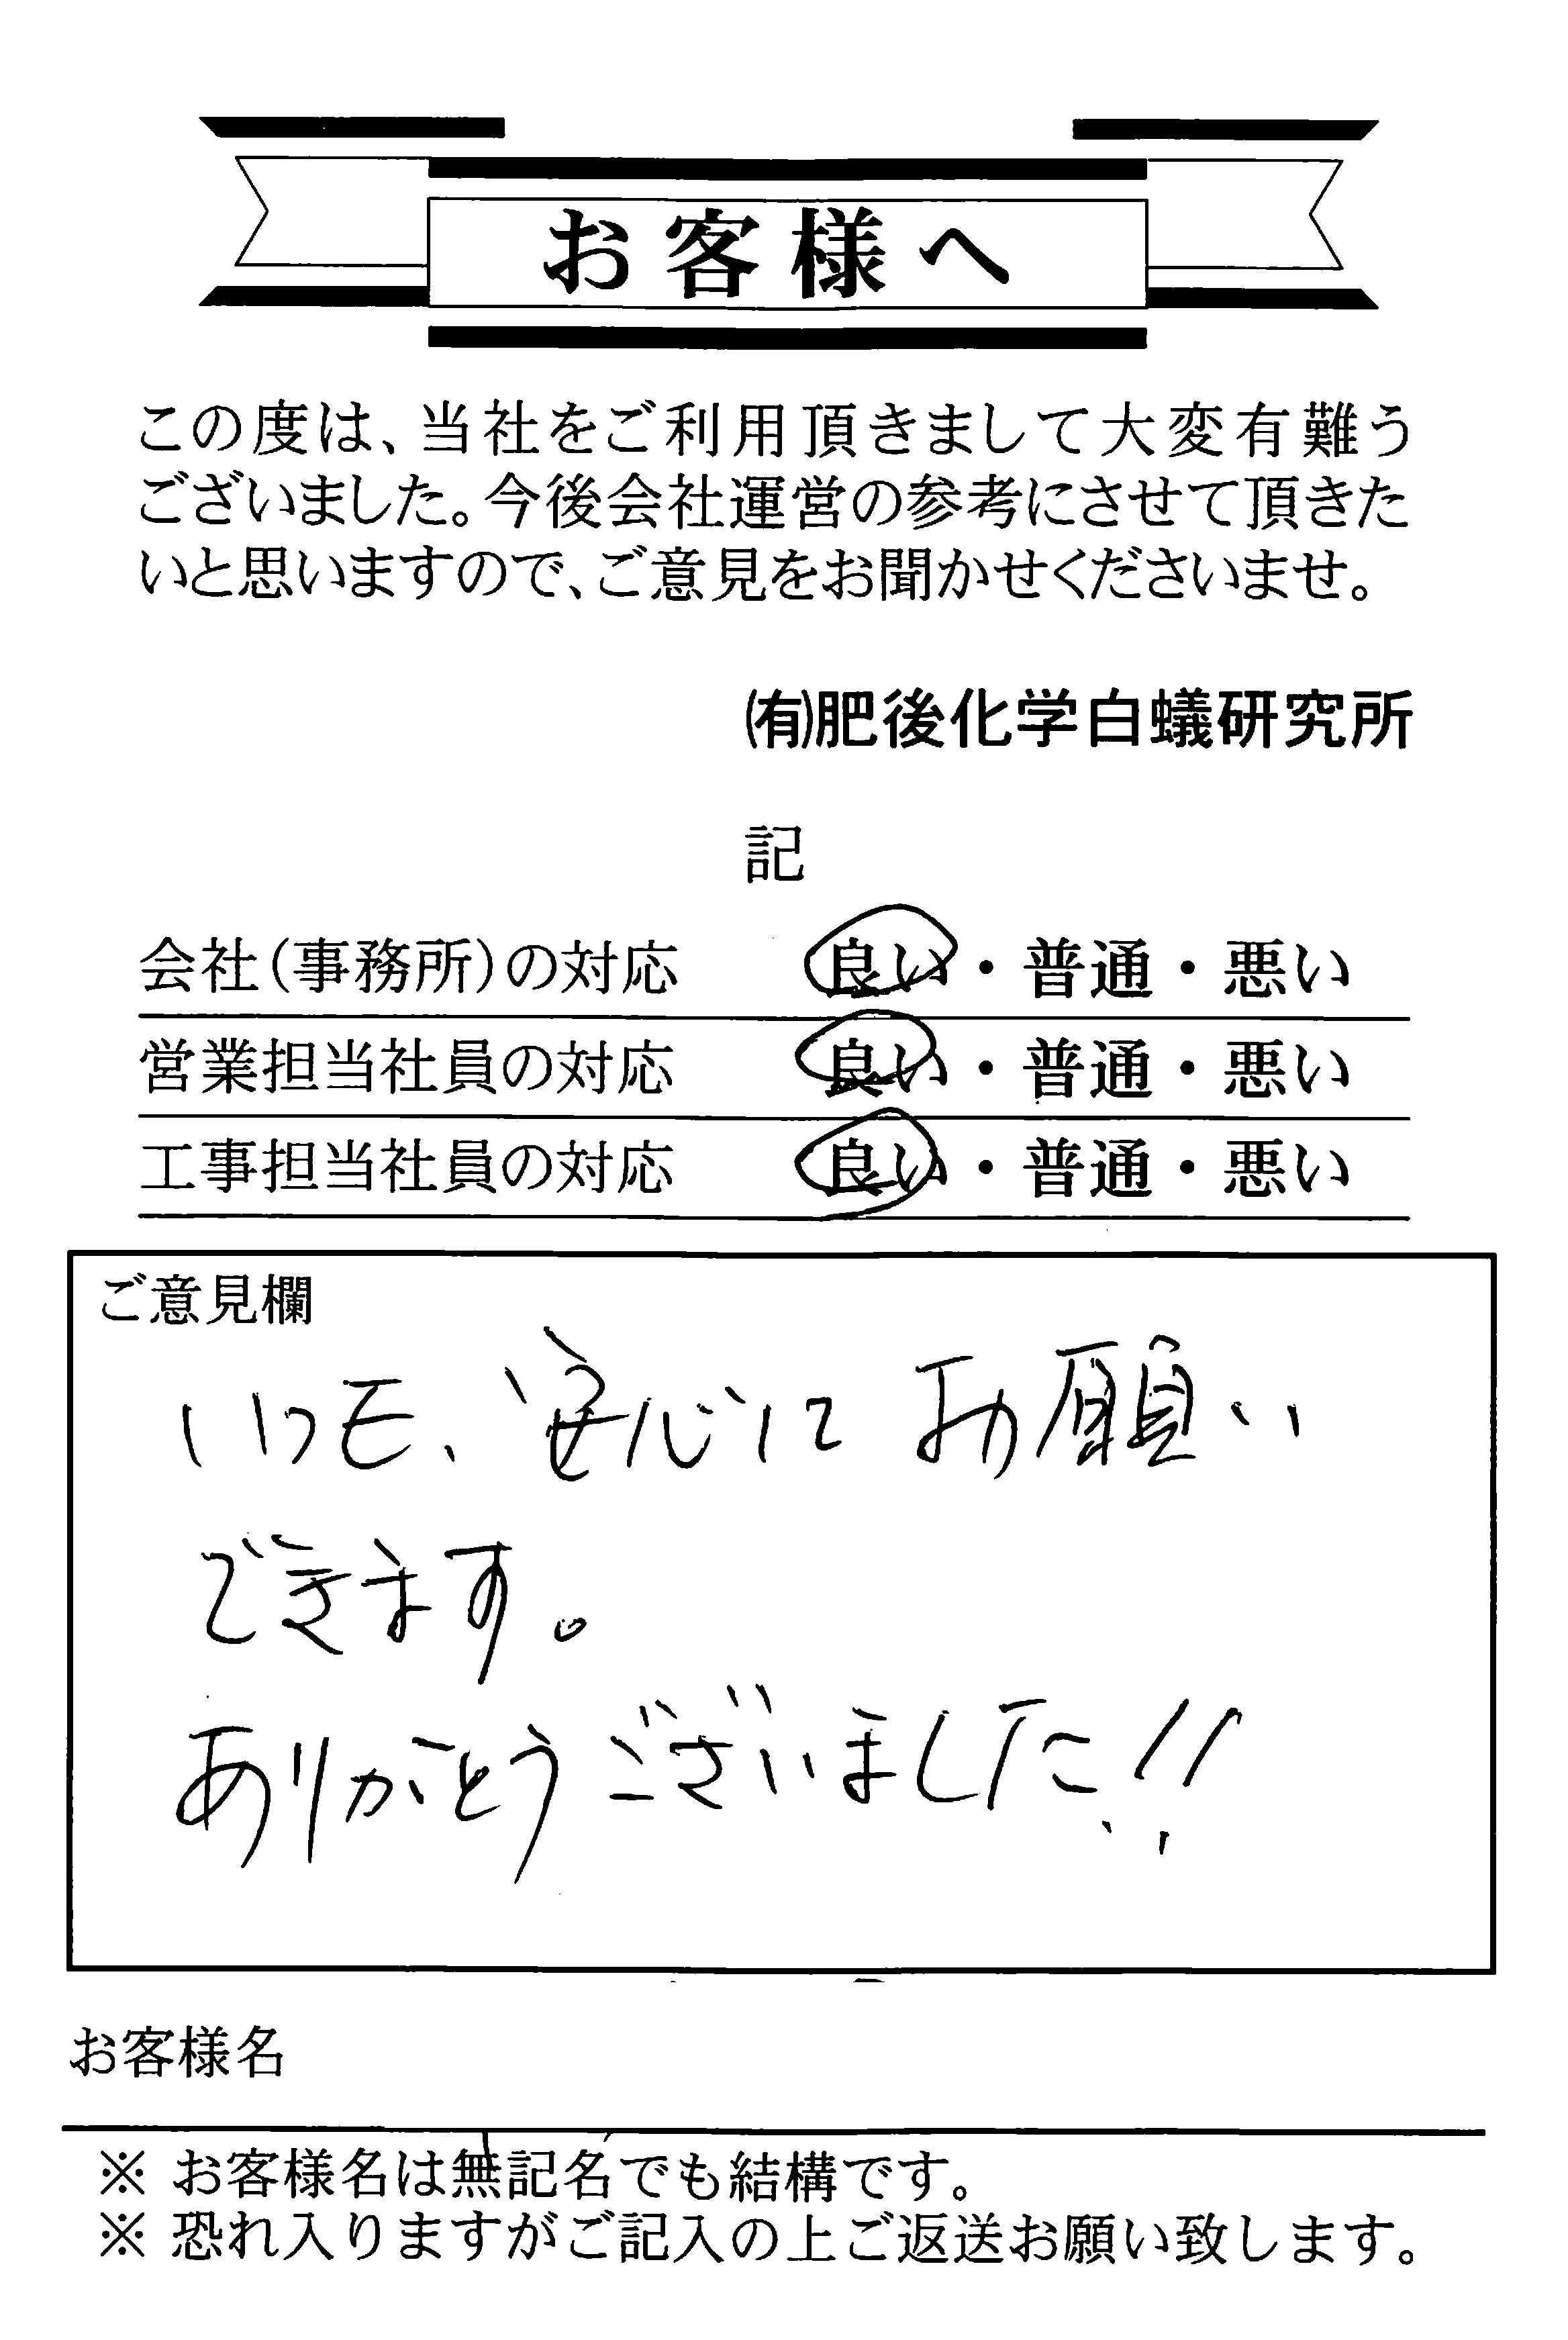 お客様へ
この度は、当社をご利用頂きまして大変有難う
ございました。今後会社運営の参考にさせて頂きた
いと思いますので、ご意見をお聞かせくださいませ。
㈲肥後化学白蟻研究所
記
会社(事務所)の対応 良い・普通・悪い
営業担当社員の対応 良い・普通・悪い
工事担当社員の対応 良い・普通・悪い
ご意見欄
いつも、安心にお願い
できます。
ありがとうございました!!
お客様名
※ お客様名は無記名でも結構です。
※ 恐れ入りますがご記入の上ご返送お願い致します。